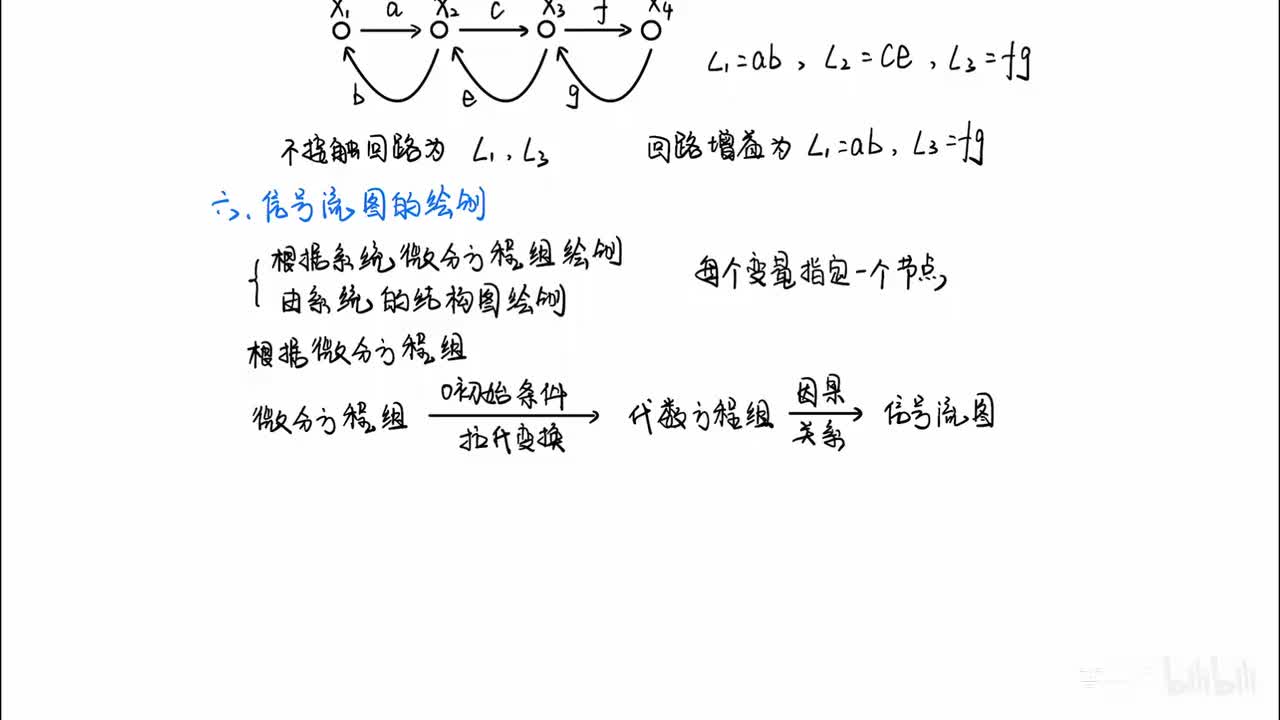 x₁ a x₂ c x₃ f x₄
b e g
L₁=ab , L₂=ce , L₃=fg
不接触回路为 L₁ , L₃ 回路增益为 L₁=ab , L₃=fg
六、信号流图的绘制
根据系统微分方程组绘制
由系统的结构图绘制
每个变量指定一个节点,
根据微分方程组
微分方程组 0初始条件 拉氏变换 代数方程组 因果关系 信号流图
bilibili